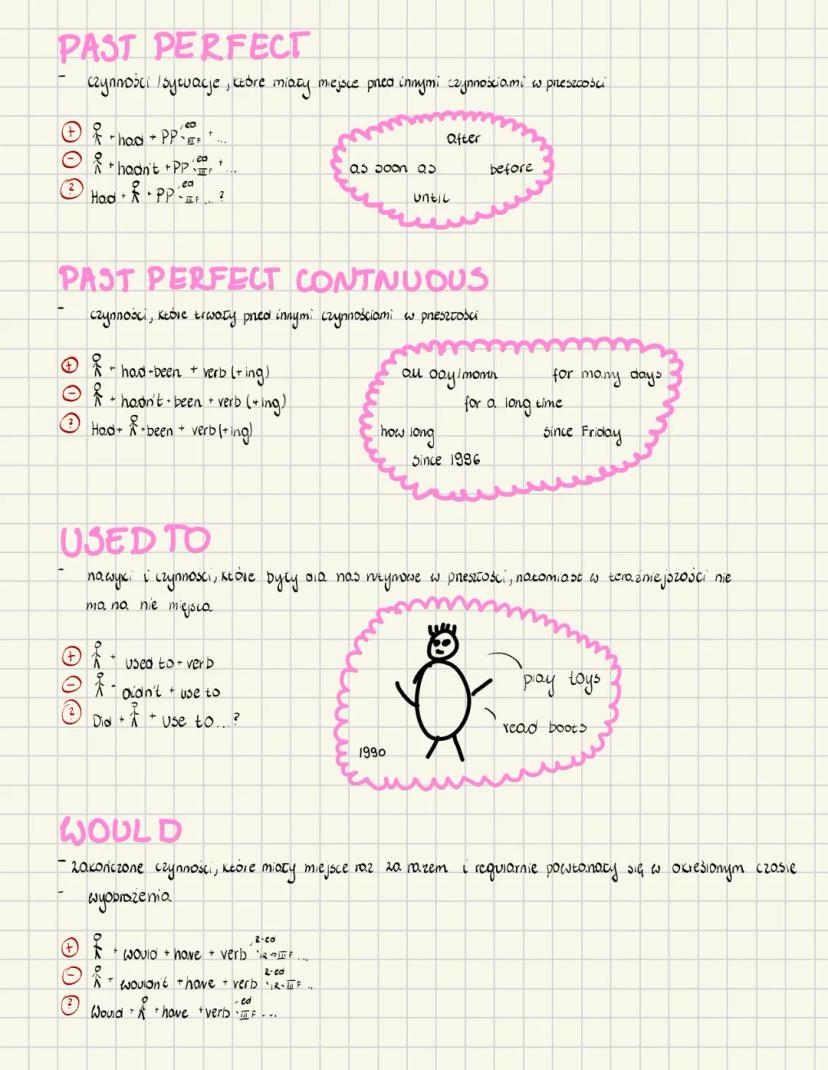 PAST PERFECT
- czynności /sytuacje, które miały miejsce przed innymi czynnościami w przeszłości
+ + had + PP ed III F + ...
- + hadn't + PP ed III F + ...
? Had + + PP ed III F ... ?
after
as soon as before
until
PAST PERFECT CONTNUOUS
- czynności, które trwały przed innymi czynnościami w przeszłości
+ + had + been + verb (+ing)
- + hadn't + been + verb (+ing)
? Had + + been + verb (+ing)
all day/month for many days
for a long time
how long since Friday
since 1996
USED TO
- nawyki i czynności, które były dla nas rutynowe w przeszłości, natomiast w teraźniejszości nie
ma na nie miejsca
+ + used to + verb
- + didn't + use to
? Did + + use to ... ?
play toys
read boots
1990
WOULD
- zakończone czynności, które miały miejsce raz za razem i regularnie powtarzały się w określonym czasie
- wyobrażenia
+ + would + have + verb R-ed IR-III F ...
- + wouldn't + have + verb R-ed IR-III F ..
? Would + + have + verb -ed III F ...